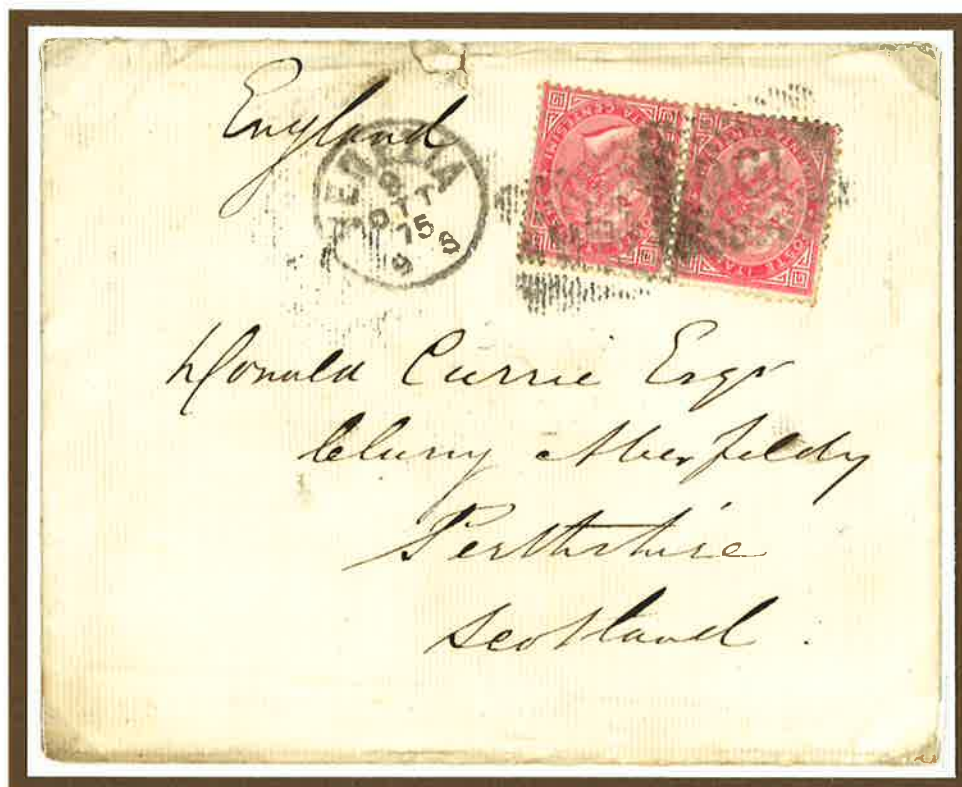 England
VENEZIA
9
OTT
75 8
9
Donald Currie Esqr
Cluny Aberfeldy
Perthshire
Scotland.